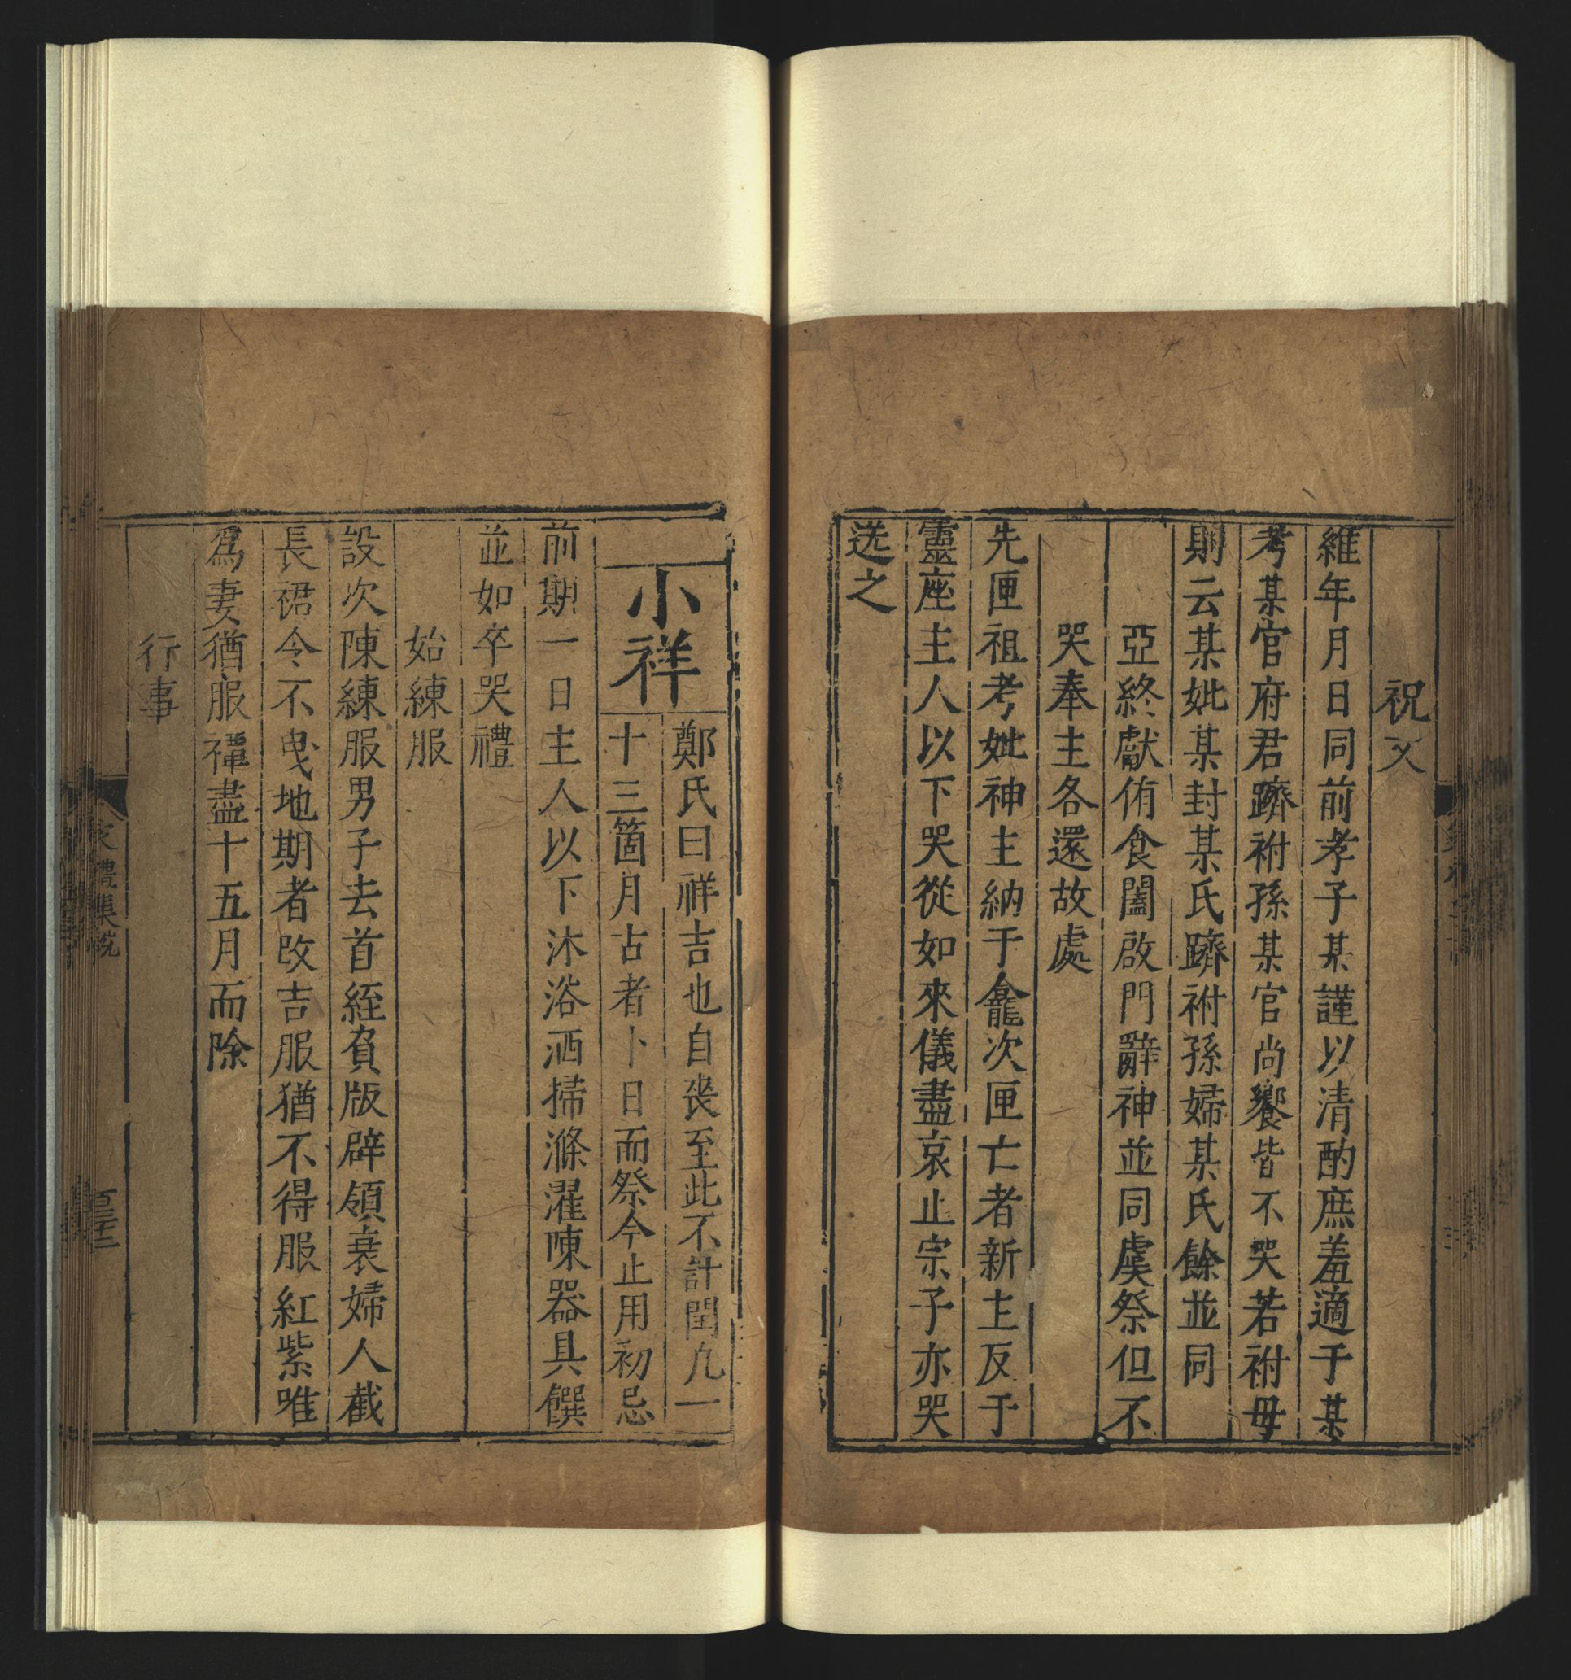 祝文
維年月日同前孝子某謹以清酌庶羞適于某
考某官府君躋祔孫某官尚饗皆不哭若祔母
則云某妣某封某氏躋祔孫婦某氏餘並同
亞終獻侑食闔啟門辭神並同虞祭但不
哭奉主各還故處
先匣祖考妣神主納于龕次匣亡者新主反于
靈座主人以下哭從如來儀盡哀止宗子亦哭
送之
小祥
鄭氏曰祥吉也自喪至此不計閏凡一
十三箇月古者卜日而祭今止用初忌
前期一日主人以下沐浴洒掃滌濯陳器具饌
並如卒哭禮
始練服
設次陳練服男子去首絰負版辟領衰婦人截
長裙令不曳地期者改吉服猶不得服紅紫唯
爲妻猶服禫盡十五月而除
行事
家禮集說